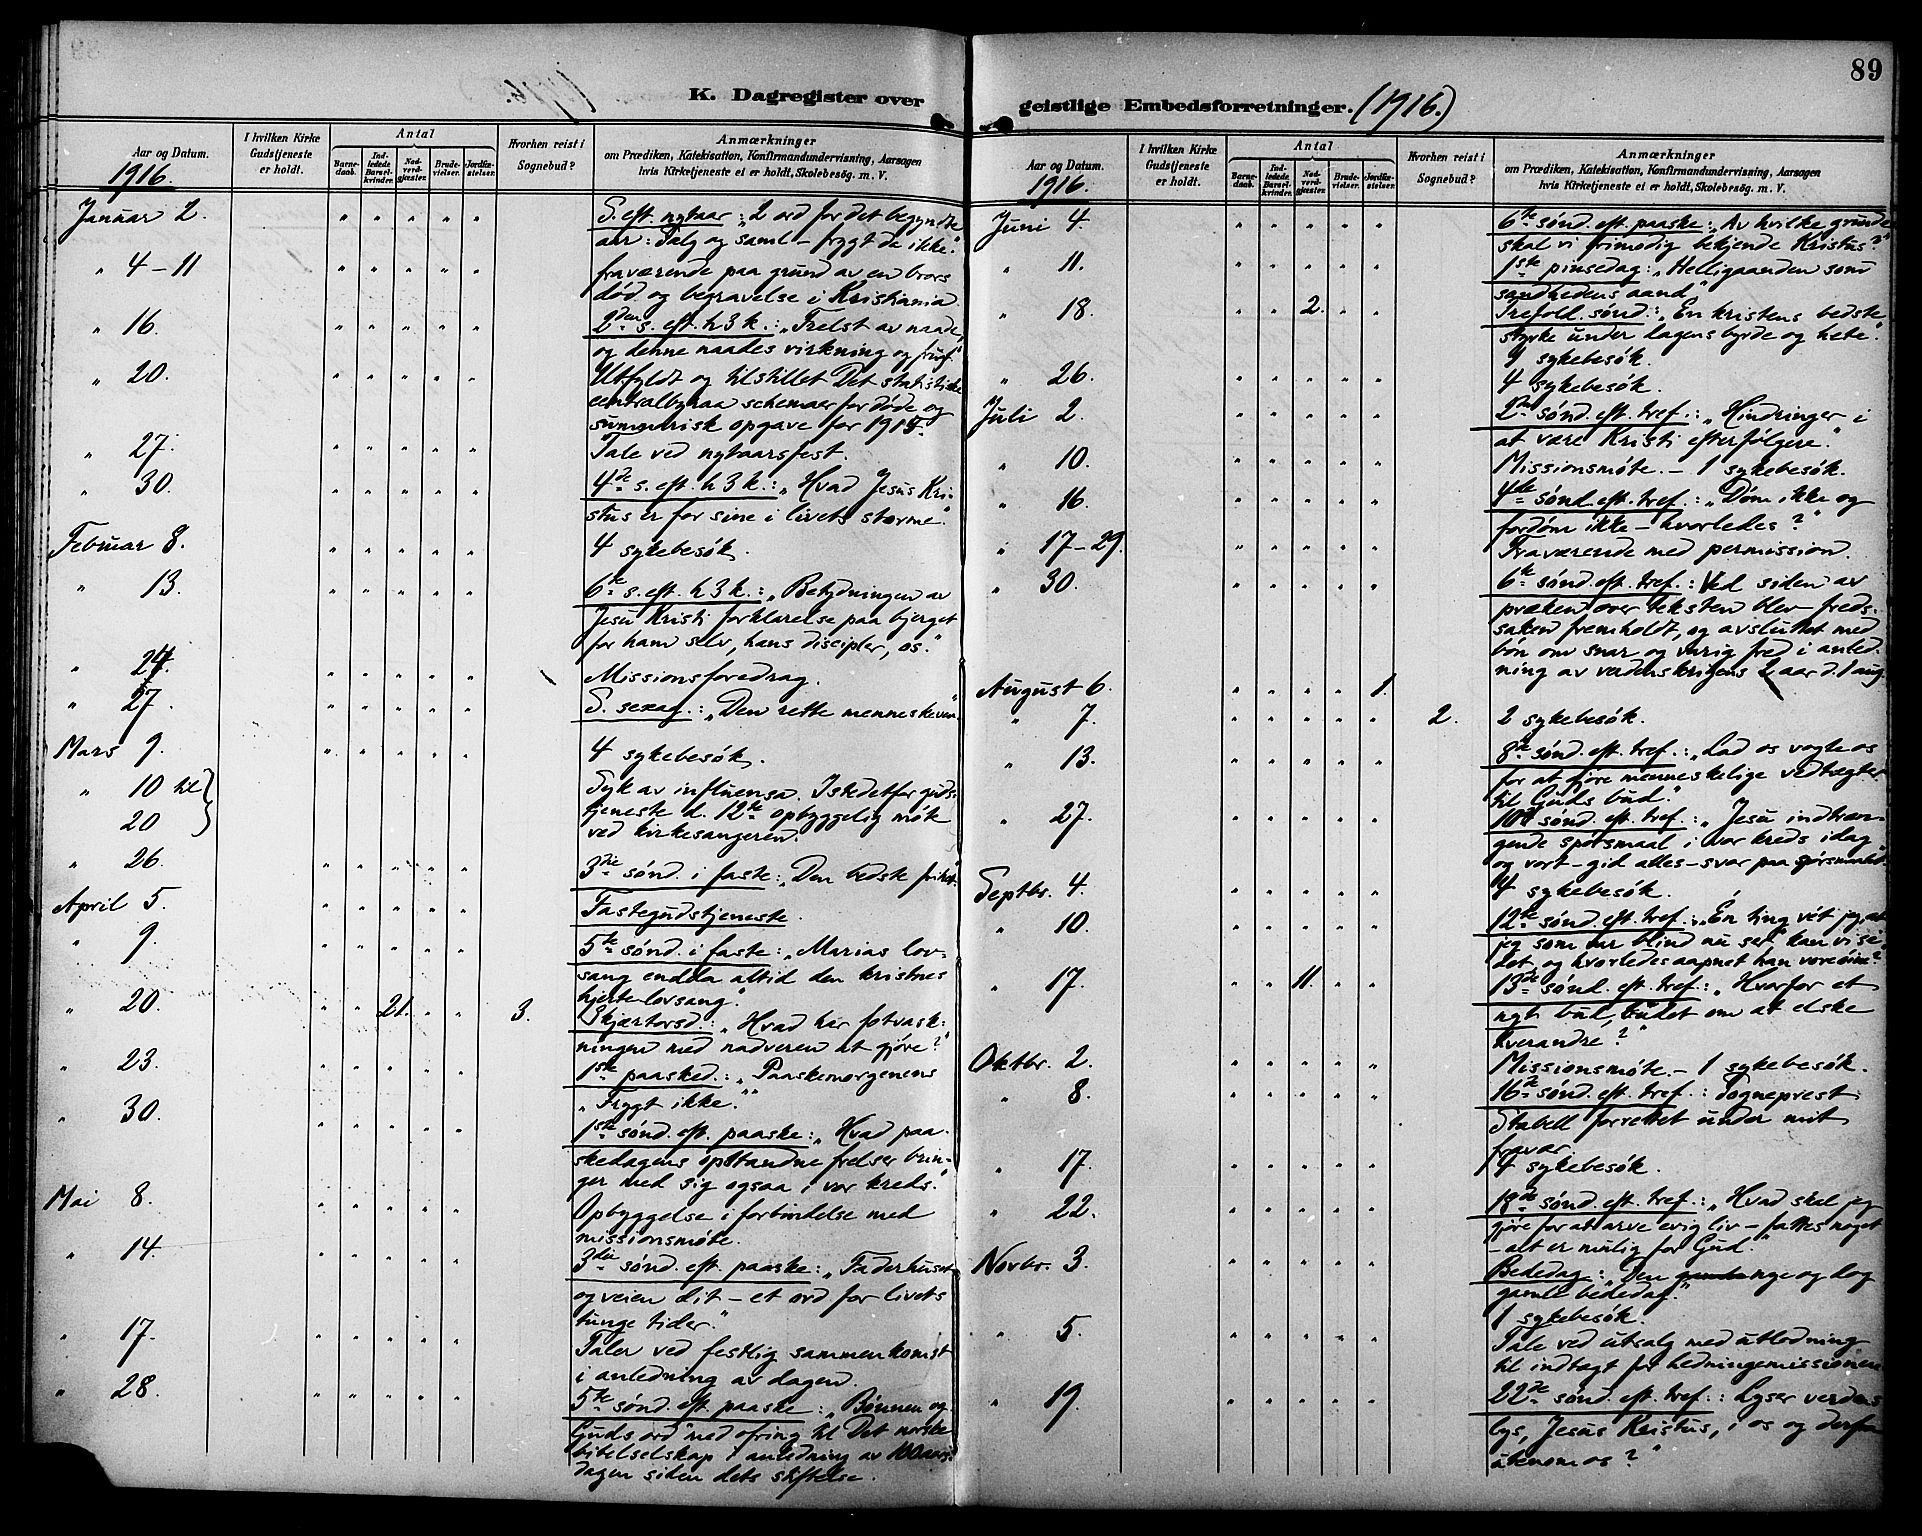 89
K. Dagregister over
geistlige Embedsforretninger. (1916.)
Aar og Datum.
1916.
I hvilken Kirke Gudstjeneste er holdt.
Antal
Barnedaab.
Indledede Barselkvinder.
Nadverdgjæster.
Brudevielser.
Jordfæstelser.
Hvorhen reist i Sognebud?
Anmærkninger
om Prædiken, Katekisation, Konfirmandundervisning, Aarsagen
hvis Kirketjeneste ei er holdt, Skolebesøg. m. V.
Januar 2. " " " " " S. eft. nytaar: "2 ord for det begyndte
aar: Følg og saml – frygt de ikke."
" 4 – 11 " " " " " fraværende paa grund av en brors
død og begravelse i Kristiania
" 16. " " " " " 2den s. eft. h 3 k.: "Frelst av naade,
og denne naades virkning og frugt"
" 20. " " " " " Utfyldt og tilstillet Det statistiske
centralbyraa schemaer for døde og
summarisk opgave for 1915.
" 27. " " " " " Tale ved nytaarsfest.
" 30. " " " " " 4de s. eft. h 3 k.: "Hvad Jesus Kri-
stus er for sine i livets storme."
Februar 8. " " " " " 4 sykebesøk.
" 13. " " " " " 6te s. eft. h 3 k.: "Betydningen av
Jesu Kristi forklarelse paa bjerget
for ham selv, hans discipler, os."
" 24. " " " " " Missionsforedrag.
" 27. " " " " " S. sexag.: "Den rette menneskeven"
Mars 9. " " " " " 4 sykebesøk.
" 10 til Syk av influensa. Istedetfor guds-
20 tjeneste d. 12te opbyggelig møte
ved kirkesangeren.
" 26. " " " " " 3die sønd. i faste: "Den bedste frihet"
April 5. " " " " " Fastegudstjeneste.
" 9. " " " " " 5te sønd. i faste: "Marias lov-
sang endda altid den kristnes
hjerte-lovsang."
" 20. " " 21. " " 3. Skjærtorsd.: "Hvad har fotvask-
ningen med nadveren at gjøre?"
" 23. 1ste paasked.: "Paaskemorgenens
"Frygt ikke.""
" 30. " " " " " 1ste sønd. eft. paaske: "Hvad paa-
skedagens opstandne frelser brin-
ger med sig ogsaa i vor kreds."
Mai 8. " " " " " Opbyggelse i forbindelse med
missionsmøte.
" 14. " " " " " 3die sønd eft. paaske: "Faderhuset
og veien dit – et ord for livets
tunge tider."
" 17. " " " " " Taler ved festlig sammenkomst
i anledning av dagen.
" 28. " " " " " 5te sønd. eft. paaske: "Bønnen og
Guds ord" med ofring til Det norske
bibelselskap i anledning av 100aars-
dagen siden dets stiftelse.
Aar og Datum.
1916.
I hvilken Kirke Gudstjeneste er holdt.
Antal
Barnedaab.
Indledede Barselkvinder.
Nadverdgjæster.
Brudevielser.
Jordfæstelser.
Hvorhen reist i Sognebud?
Anmærkninger
om Prædiken, Katekisation, Konfirmandundervisning, Aarsagen
hvis Kirketjeneste ei er holdt, Skolebesøg. m. V.
Juni 4. " " " " " 6te sønd. eft. paaske: "Av hvilke grunde
skal vi frimodig bekjende Kristus?"
" 11. " " " " " 1ste pinsedag: "Helligaanden som
sandhedens aand"
" 18. " " 2. " " Trefold. sønd: "En kristens bedste
styrke under dagens byrde og hete."
4 sykebesøk.
" 26. " " " " " 4 sykebesøk.
Juli 2. " " " " " 2den sønd. eft. tref.: "Hindringer i
at være Kristi efterfølgere."
" 10. " " " " " Missionsmøte. – 1 sykebesøk.
" 16. " " " " " 4de sønd. eft. tref.: "Døm ikke og
fordøm ikke – hvorledes?"
" 17 – 29. " " " " " Fraværende med permission.
" 30. " " " " " 6te sønd. eft. tref.: Ved siden av
præken over teksten blev freds-
saken fremholdt, og avsluttet med
bøn om snar og varig fred i anled-
ning av verdenskrigens 2 aar d. 1 aug.
August 6. " " " " 1.
" 7. " " " " " 2. 2 sykebesøk.
" 13. " " " " " 8de sønd. eft. tref.: "Lad os vogte os
for at gjøre menneskelige vedtægter
til Guds bud."
" 27. " " " " " 10de sønd. eft. tref.: "Jesu indtræn-
gende spørsmaal i vor kreds idag
og vort – gid alles – svar paa spørsmaalet"
Septbr. 4. " " " " " 4 sykebesøk.
" 10. " " " " " 12te sønd. eft. tref.: "Én ting vét jeg, at
jeg som var blind nu ser", kan vi si
det, og hvorledes aapnet han vore øine?
" 17. " " 11. " " 13de sønd. eft. tref.: "Hvorfor et
nyt bud, budet om at elske
hverandre?"
Oktbr. 2. " " " " " Missionsmøte. – 1 sykebesøk.
" 8. " " " " " 16de sønd. eft. tref.: Sogneprest
Stabell forrettet under mit
fravær.
" 17. " " " " " 4 sykebesøk.
" 22. " " " " " 18de sønd. eft. tref.: "Hvad skal jeg
gjøre for at arve evig liv – fattes noget
– alt er mulig for Gud."
Novbr. 3. " " " " " Bededag: "Den nye og dog
gamle bededag."
1 sykebesøk.
" 5. " " " " " Tale ved utsalg med utlodning
til indtægt for hedningemissionen
" 19. " " " " " 22de sønd. eft. tref.: Lyser verdens
lys, Jesus Kristus, i os og derfra
utenom os?"